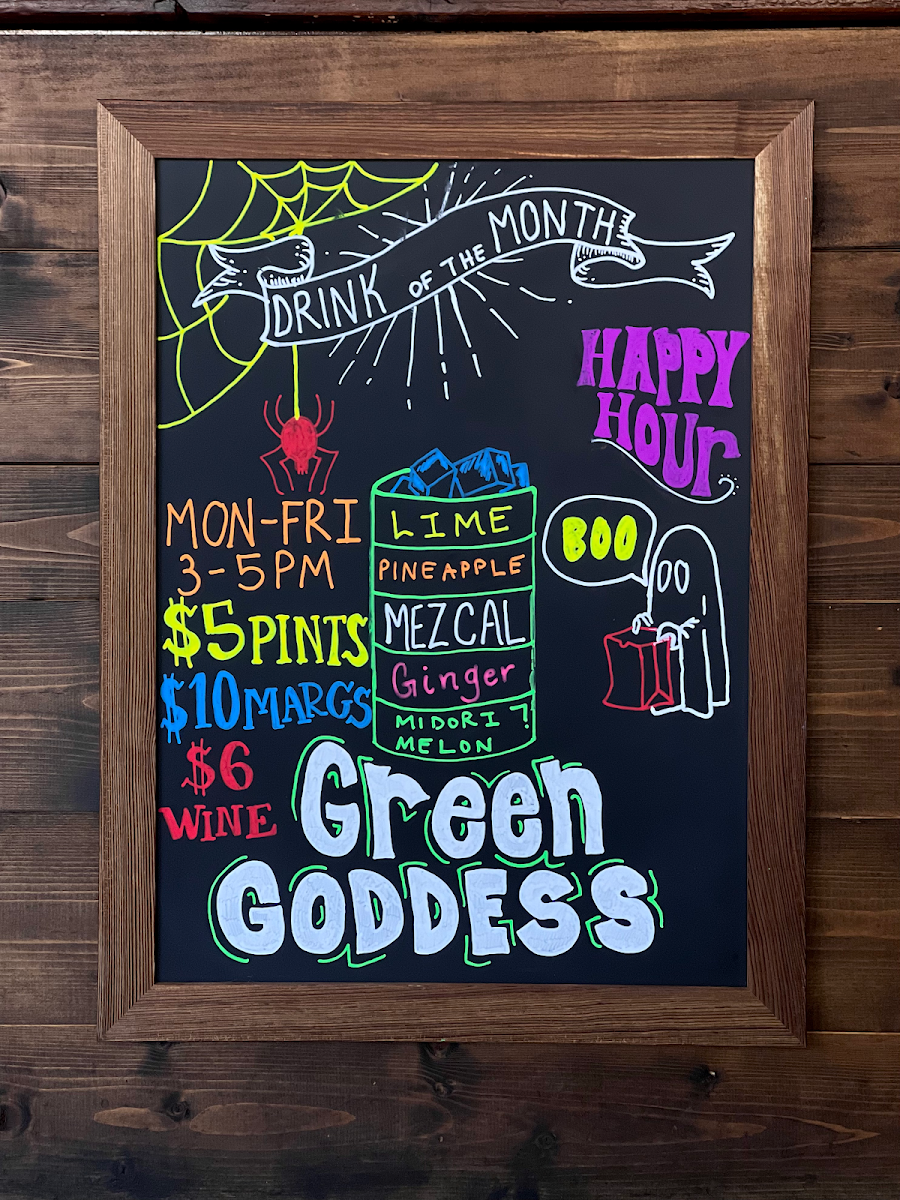 DRINK OF THE MONTH
HAPPY
HOUr
MON-FRI
3-5PM
$5 PINTS
$10 MARGS
$6
WINE
LIME
PINEAPPLE
MEZCAL
Ginger
MIDORI
MELON
BOO
Green
GODDESS